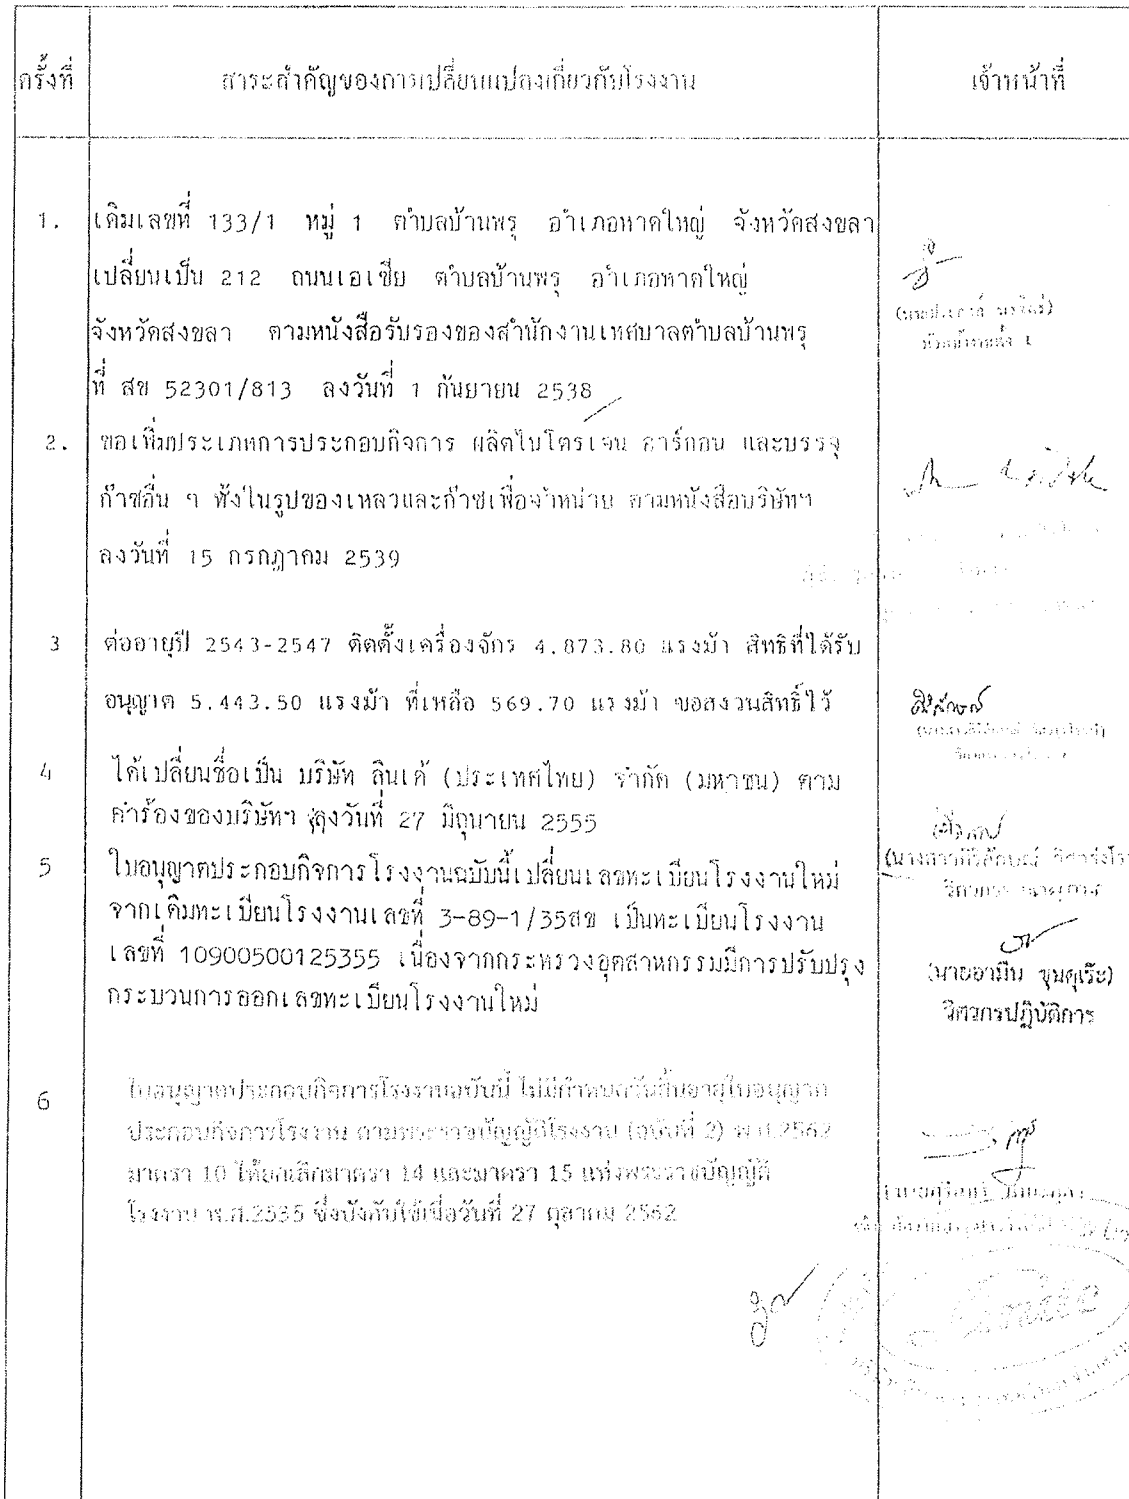 ครั้งที่ สาระสำคัญของการเปลี่ยนแปลงเกี่ยวกับโรงงาน เจ้าหน้าที่
1. เดิมเลขที่ 133/1 หมู่ 1 ตำบลบ้านพรุ อำเภอหาดใหญ่ จังหวัดสงขลา
เปลี่ยนเป็น 212 ถนนเอเซีย ตำบลบ้านพรุ อำเภอหาดใหญ่
จังหวัดสงขลา ตามหนังสือรับรองของสำนักงานเทศบาลตำบลบ้านพรุ
ที่ สข 52301/813 ลงวันที่ 1 กันยายน 2538
2. ขอเพิ่มประเภทการประกอบกิจการ ผลิตไนโตรเจน อาร์กอน และบรรจุ
ก๊าซอื่น ๆ ทั้งในรูปของเหลวและก๊าซเพื่อจำหน่าย ตามหนังสือบริษัทฯ
ลงวันที่ 15 กรกฎาคม 2539
3 ต่ออายุปี 2543-2547 ติดตั้งเครื่องจักร 4.873.80 แรงม้า สิทธิที่ได้รับ
อนุญาต 5.443.50 แรงม้า ที่เหลือ 569.70 แรงม้า ขอสงวนสิทธิ์ไว้
4 ได้เปลี่ยนชื่อเป็น บริษัท ลินเด้ (ประเทศไทย) จำกัด (มหาชน) ตาม
คำร้องของบริษัทฯ ลงวันที่ 27 มิถุนายน 2555
5 ใบอนุญาตประกอบกิจการโรงงานฉบับนี้เปลี่ยนเลขทะเบียนโรงงานใหม่
จากเดิมทะเบียนโรงงานเลขที่ 3-89-1/35สข เป็นทะเบียนโรงงาน
เลขที่ 10900500125355 เนื่องจากกระทรวงอุตสาหกรรมมีการปรับปรุง
กระบวนการออกเลขทะเบียนโรงงานใหม่
(นายอามีน ขุนดุเร๊ะ)
วิศวกรปฏิบัติการ
6 ใบอนุญาตประกอบกิจการโรงงานฉบับนี้ ไม่มีกำหนดวันสิ้นอายุใบอนุญาต
ประกอบกิจการโรงงาน ตามพระราชบัญญัติโรงงาน (ฉบับที่ 2) พ.ศ.2562
มาตรา 10 ให้ยกเลิกมาตรา 14 และมาตรา 15 แห่งพระราชบัญญัติ
โรงงาน พ.ศ.2535 ซึ่งบังคับใช้เมื่อวันที่ 27 ตุลาคม 2562